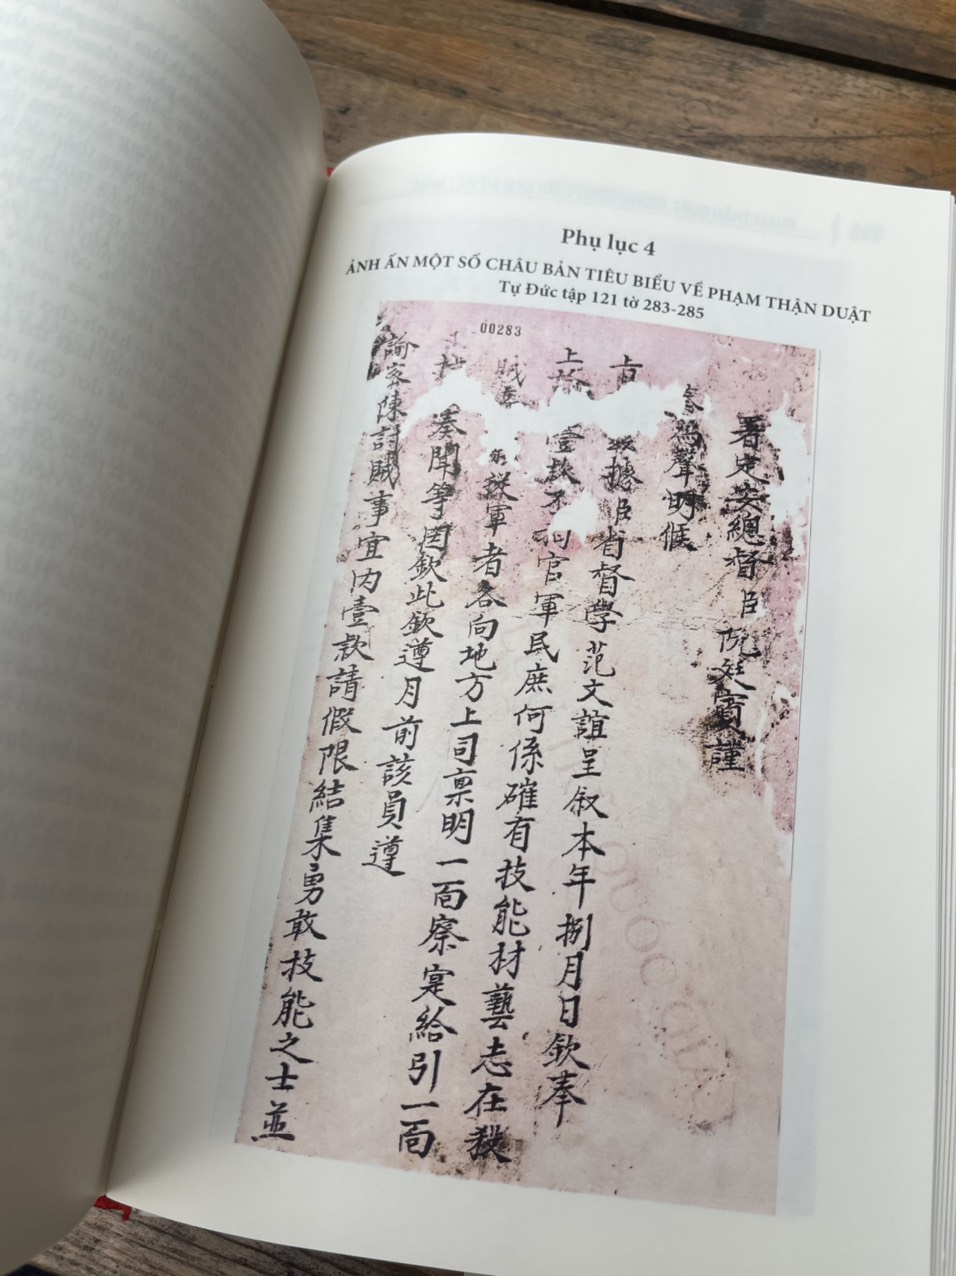 Phụ lục 4
ẢNH ẤN MỘT SỐ CHÂU BẢN TIÊU BIỂU VỀ PHẠM THẬN DUẬT
Tự Đức tập 121 tờ 283-285
00283
署定安總督臣阮廷賓謹
奏為聲明候
旨 據臣省督學范文誼呈叙本年捌月日欽奉
上諭 壹款不拘官軍民庶何係確有技能材藝志在
賊 軍者各向地方上司禀明一面察寔給引一面
抄 奏聞等因欽此欽遵月前該員遵
諭客陳討賊事宜内壹款請假限結集勇敢技能之士並